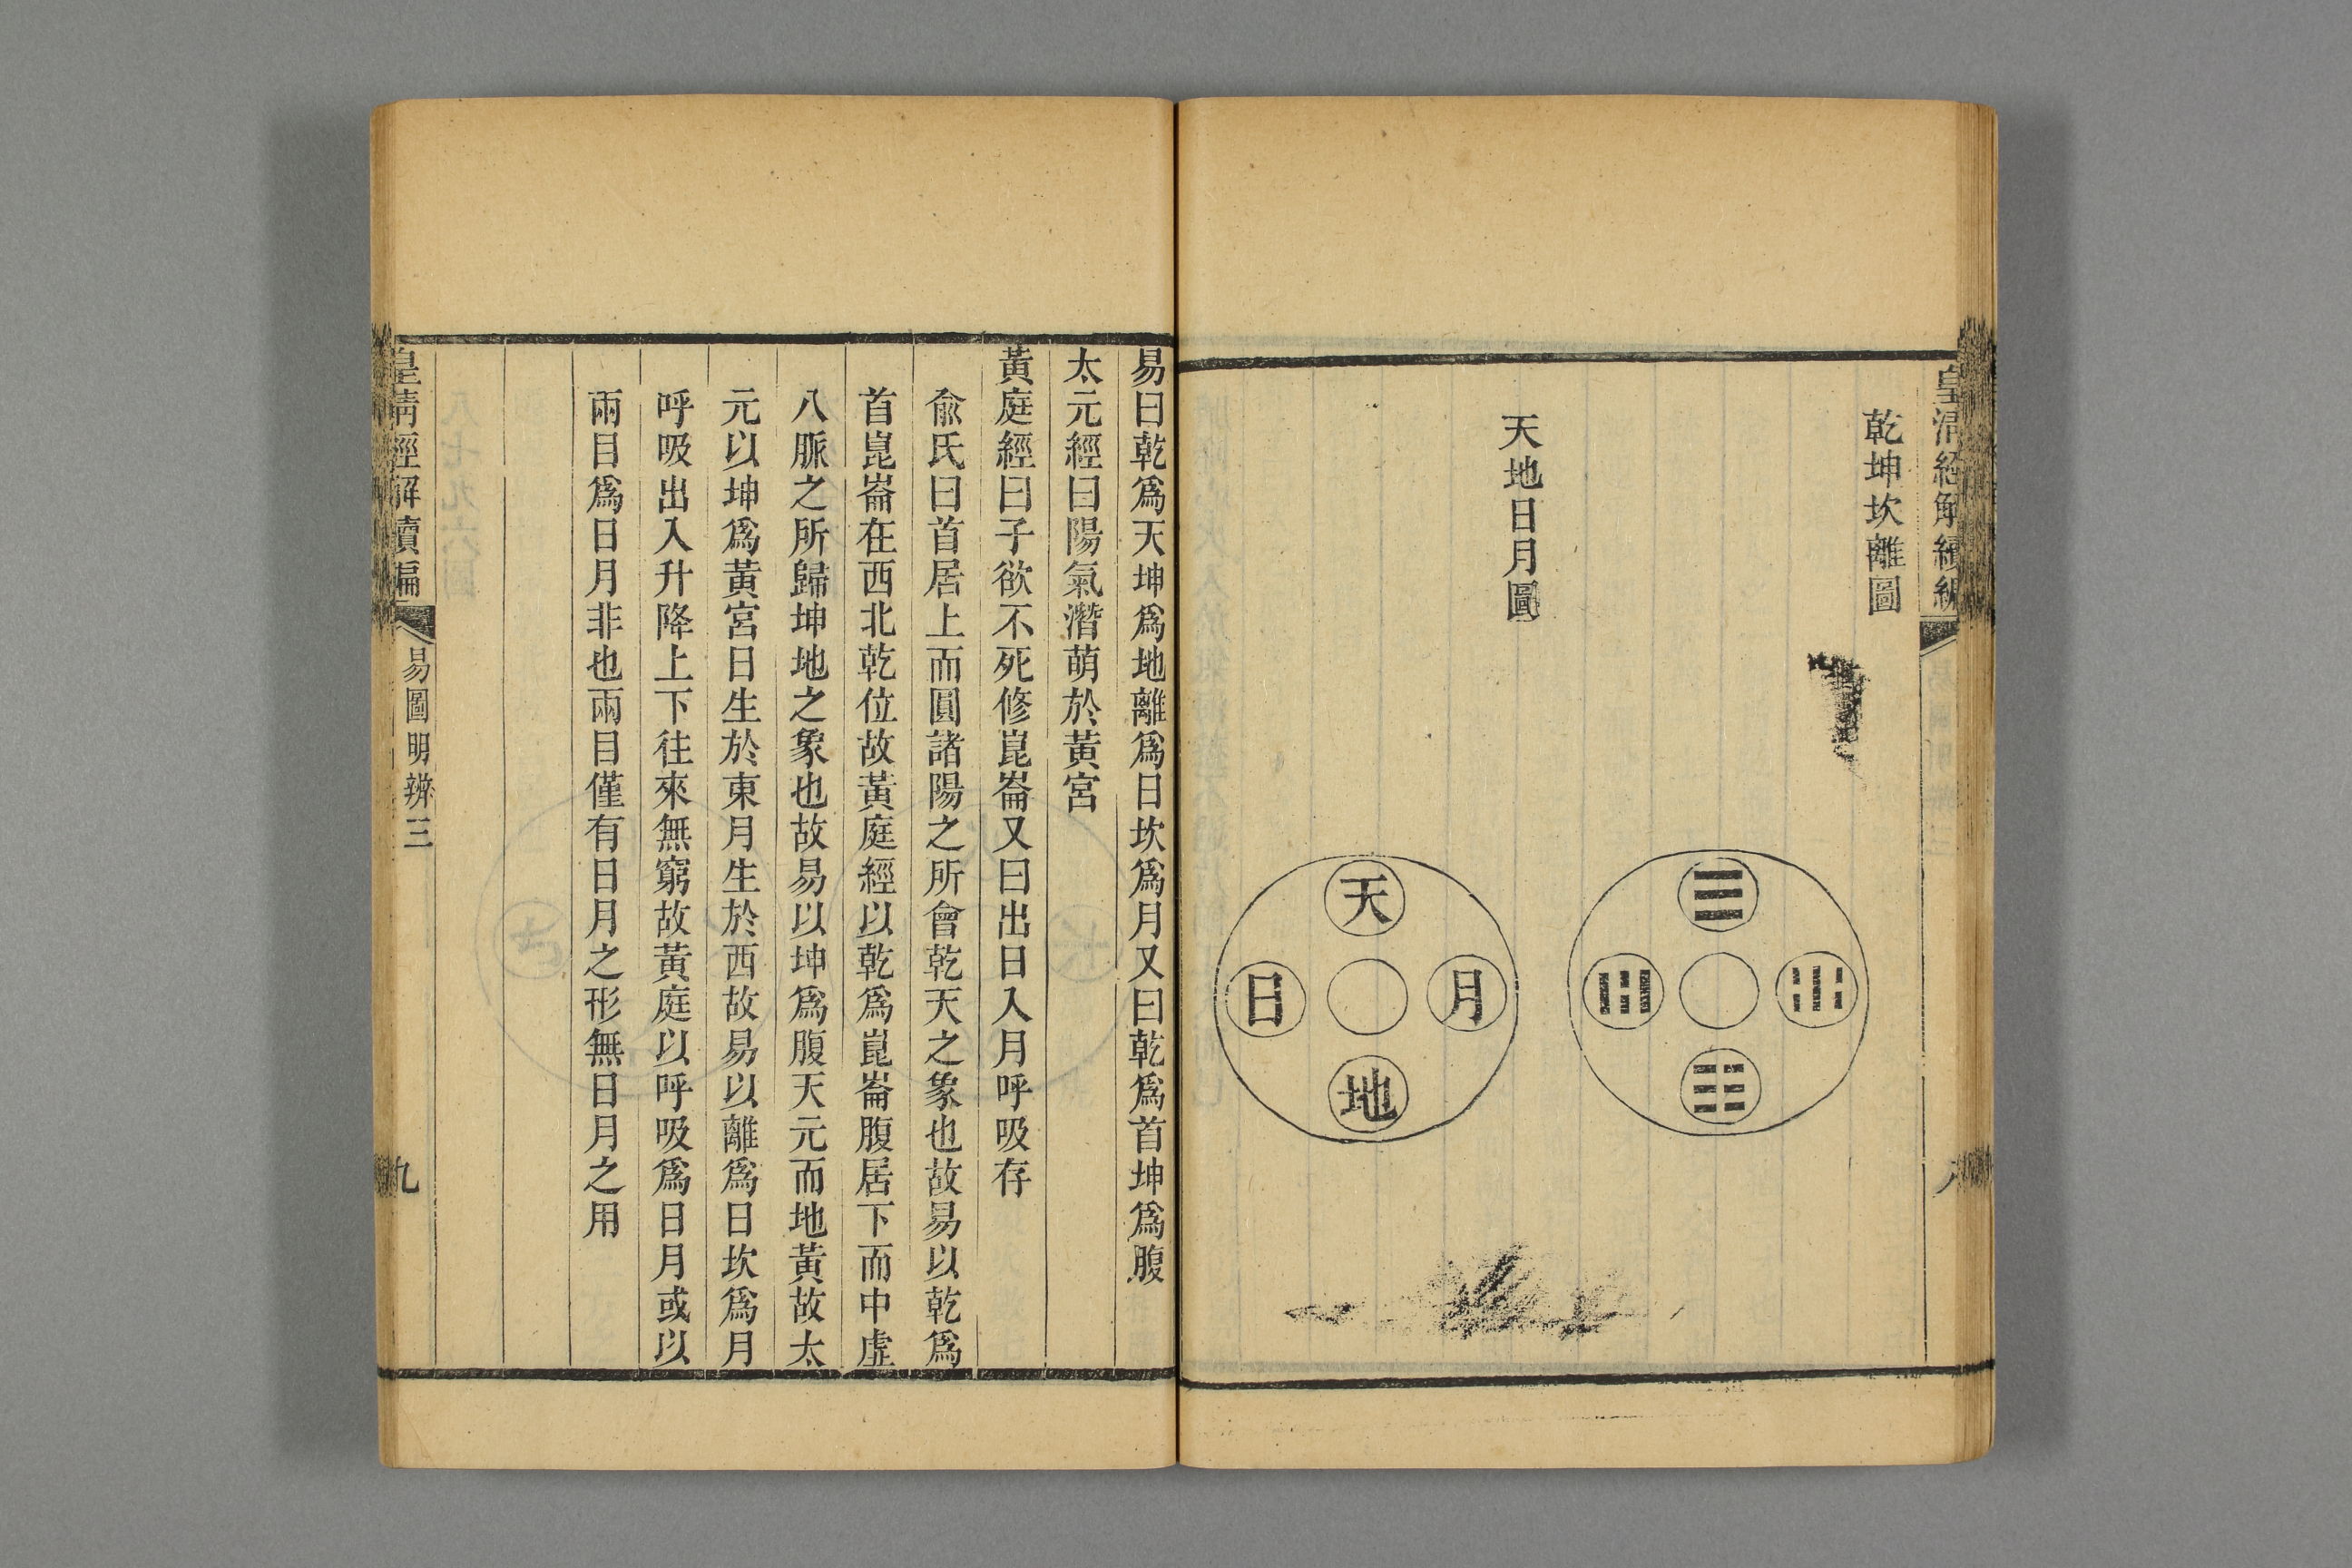 皇清經解續編
八
乾坤坎離圖
天地日月圖
天
月
日
地
易曰乾爲天坤爲地離爲日坎爲月又曰乾爲首坤爲腹
太元經曰陽氣潛萌於黃宮
黃庭經曰子欲不死修崑崙又曰出日入月呼吸存
俞氏曰首居上而圓諸陽之所會乾天之象也故易以乾爲
首崑崙在西北乾位故黃庭經以乾爲崑崙腹居下而中虛
八脈之所歸坤地之象也故易以坤爲腹天元而地黃故太
元以坤爲黃宮日生於東月生於西故易以離爲日坎爲月
呼吸出入升降上下往來無窮故黃庭以呼吸爲日月或以
兩目爲日月非也兩目僅有日月之形無日月之用
皇清經解續編
易圖明辨三
九